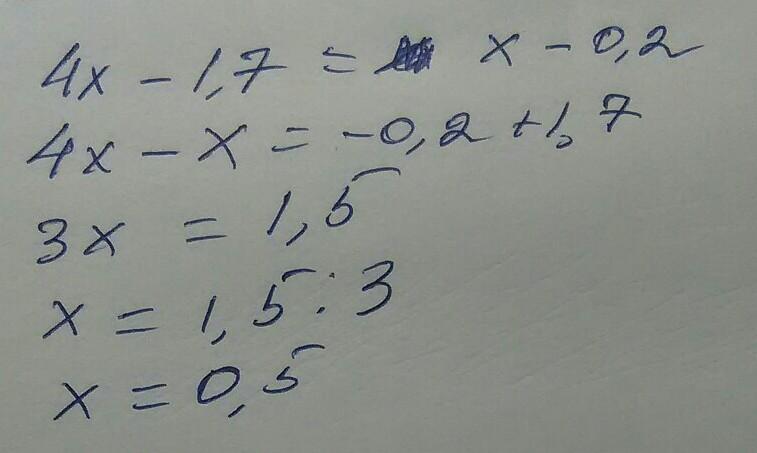 4x - 1,7 = x - 0,2
4x - x = -0,2 + 1,7
3x = 1,5
x = 1,5 : 3
x = 0,5